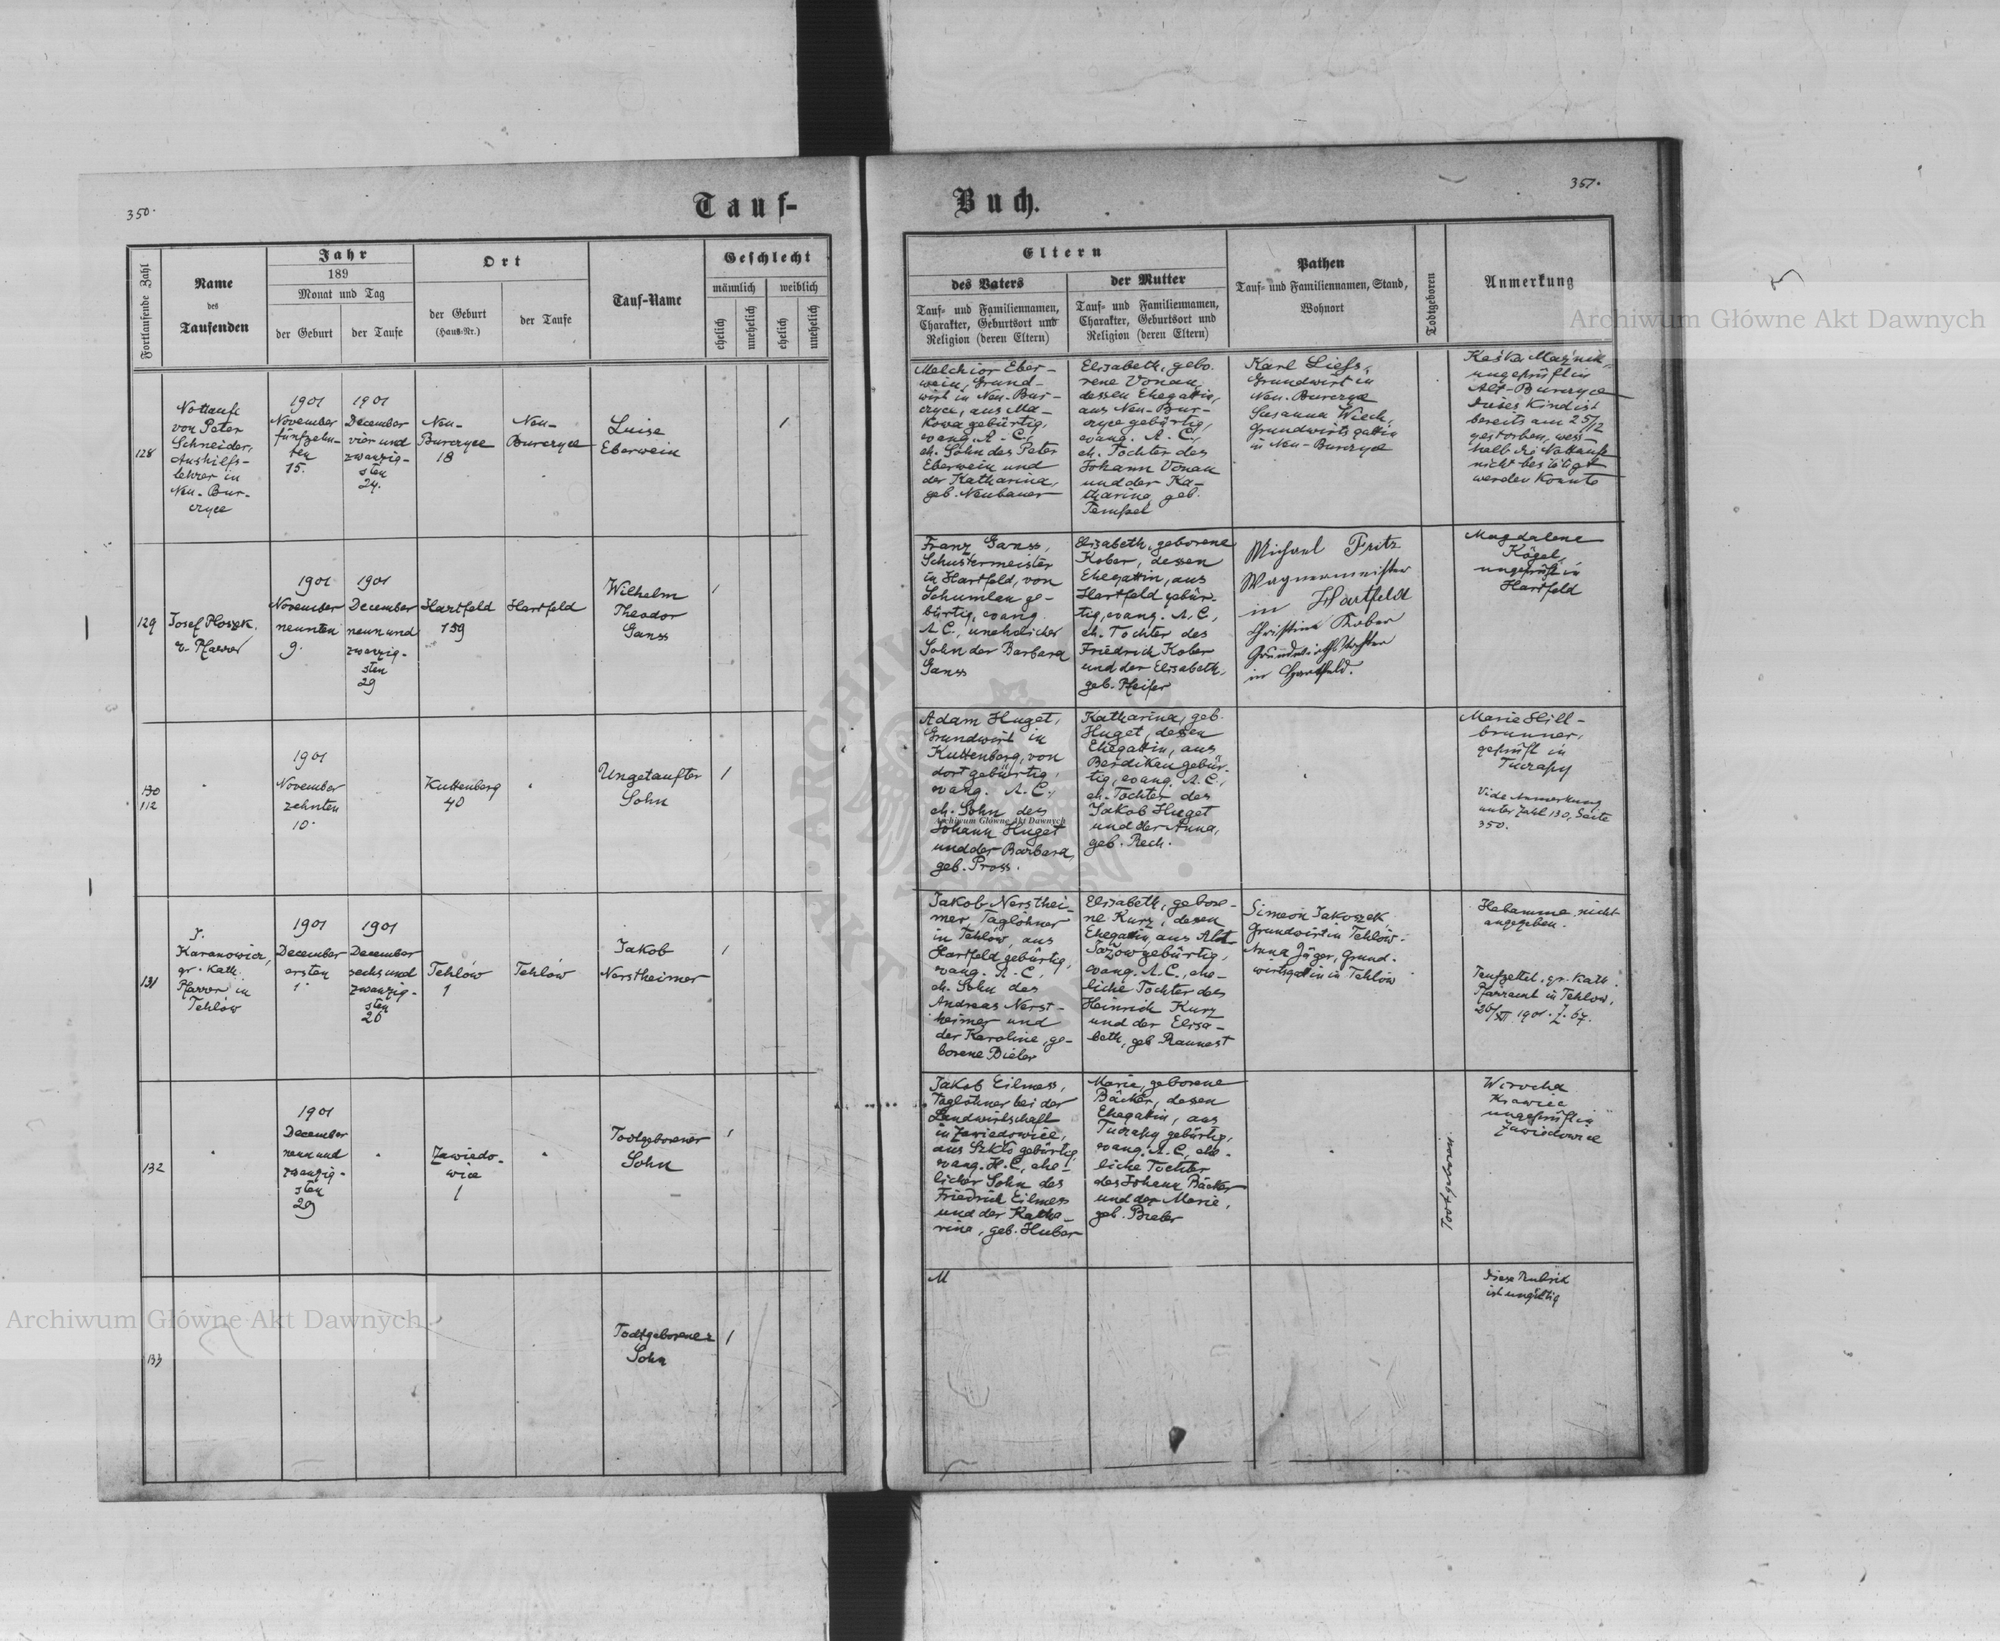 350.
Tauf-
Buch.
351.
Fortlaufende Zahl
Name
des
Taufenden
Jahr
189
Monat und Tag
der Geburt
der Taufe
Ort
der Geburt
(Haus-Nr.)
der Taufe
Tauf-Name
Geschlecht
männlich
weiblich
ehelich
unehelich
ehelich
unehelich
Eltern
des Vaters
Tauf- und Familiennamen,
Charakter, Geburtsort und
Religion (deren Eltern)
der Mutter
Tauf- und Familiennamen,
Charakter, Geburtsort und
Religion (deren Eltern)
Pathen
Tauf- und Familiennamen, Stand,
Wohnort
Todtgeboren
Anmerkung
Archiwum Główne Akt Dawnych
128
Nottaufe
von Peter
Schneider,
Aushilfs-
lehrer in
Neu-Bur-
czyce
1901
November
fünfzehn-
ten
15.
1901
December
vier und
zwanzig-
sten
24.
Neu-
Burczyce
18
Neu-
Burczyce
Luise
Eberwein
1
Melchior Eber-
wein, Grund-
wirt in Neu-Bur-
czyce, aus Ma-
kowa gebürtig,
evang. A. C.,
eh. Sohn des Peter
Eberwein und
der Katharina,
geb. Neubauer
Elisabeth, gebo-
rene Vonau,
dessen Ehegattin,
aus Neu-Bur-
czyce gebürtig,
evang. A. C.,
eh. Tochter des
Johann Vonau
und der Ka-
tharina, geb.
Tempel
Karl Liess,
Grundwirt in
Neu-Burczyce
Susanna Wiech,
Grundwirtsgattin
in Neu-Burczyce
ungeprüft in
Alt-Burczyce
Dieses Kind ist
bereits am 25/12
gestorben, wes-
halb die Nottaufe
nicht bestätigt
werden konnte
129
Josef Ploszek,
ev. Pfarrer
1901
November
neunten
9.
1901
December
neun und
zwanzig-
sten
29
Hartfeld
159
Hartfeld
Wilhelm
Theodor
Ganss
1
Franz Ganss,
Schustermeister
in Hartfeld, von
Schumlau ge-
bürtig, evang.
A. C., unehelicher
Sohn der Barbara
Ganss
Elisabeth, geborene
Kober, dessen
Ehegattin, aus
Hartfeld gebür-
tig, evang. A. C.,
eh. Tochter des
Friedrich Kober
und der Elisabeth,
geb. Pfeifer
Michael Fritz
Wagnermeister
in Hartfeld
Christine Kober
Grundwirthstochter
in Hartfeld.
Magdalene
Kögel,
ungeprüft in
Hartfeld
130
112
1901
November
zehnten
10.
Kuttenberg
40
Ungetaufter
Sohn
1
Adam Huget,
Grundwirt in
Kuttenberg, von
dort gebürtig,
evang. A. C.,
eh. Sohn des
Johann Huget
und der Barbara,
geb. Pross.
Katharina, geb.
Huget, dessen
Ehegattin, aus
Berdikau gebür-
tig, evang. A. C.,
eh. Tochter des
Jakob Huget
und der Anna,
geb. Rech.
Marie Hill-
brunner,
geprüft in
Tuczapy
Vide Anmerkung
unter Zahl 130, Seite
350.
Archiwum Główne Akt Dawnych
131
J.
Karanowicz,
gr. Kath.
Pfarrer in
Tehlów
1901
December
ersten
1.
1901
December
sechs und
zwanzig-
sten
26
Tehlów
1
Tehlów
Jakob
Nerstheimer
1
Jakob Nersthei-
mer, Taglöhner
in Tehlow, aus
Hartfeld gebürtig,
evang. A. C.,
eh. Sohn des
Andreas Nerst-
heimer und
der Karoline, ge-
borene Bieler
Elisabeth, gebore-
ne Kurz, dessen
Ehegattin, aus Alt-
Jażów gebürtig,
evang. A. C., ehe-
liche Tochter des
Heinrich Kurz
und der Elisa-
beth, geb.
Simeon Jakoszek,
Grundwirt in Tehlów.
Anna Jäger, Grund-
wirtsgattin in Tehlów
Hebamme nicht
angegeben.
Taufzettel, gr. Kath.
Pfarramt in Tehlow,
26/XII 1901. Z. 67.
132
1901
December
neun und
zwanzig-
sten
29
Zawiedo-
wice
1
Todtgeborener
Sohn
1
Jakob Eilmess,
Taglöhner bei der
Landwirtschaft
in Zawiedowice,
aus Szkło gebürtig,
evang. H. C., ehe-
licher Sohn des
Friedrich Eilmess
und der Katha-
rina, geb. Huber
Marie, geborene
Bäcker, dessen
Ehegattin, aus
Tuczapy gebürtig,
evang. A. C., ehe-
liche Tochter
des Johann Bäcker
und der Marie,
geb. Bieber
Todtgeboren.
Krawiec
ungeprüft in
Zawiedowice
133
Todtgeborener
Sohn
1
M
Diese Rubrik
ist ungültig
Archiwum Główne Akt Dawnych